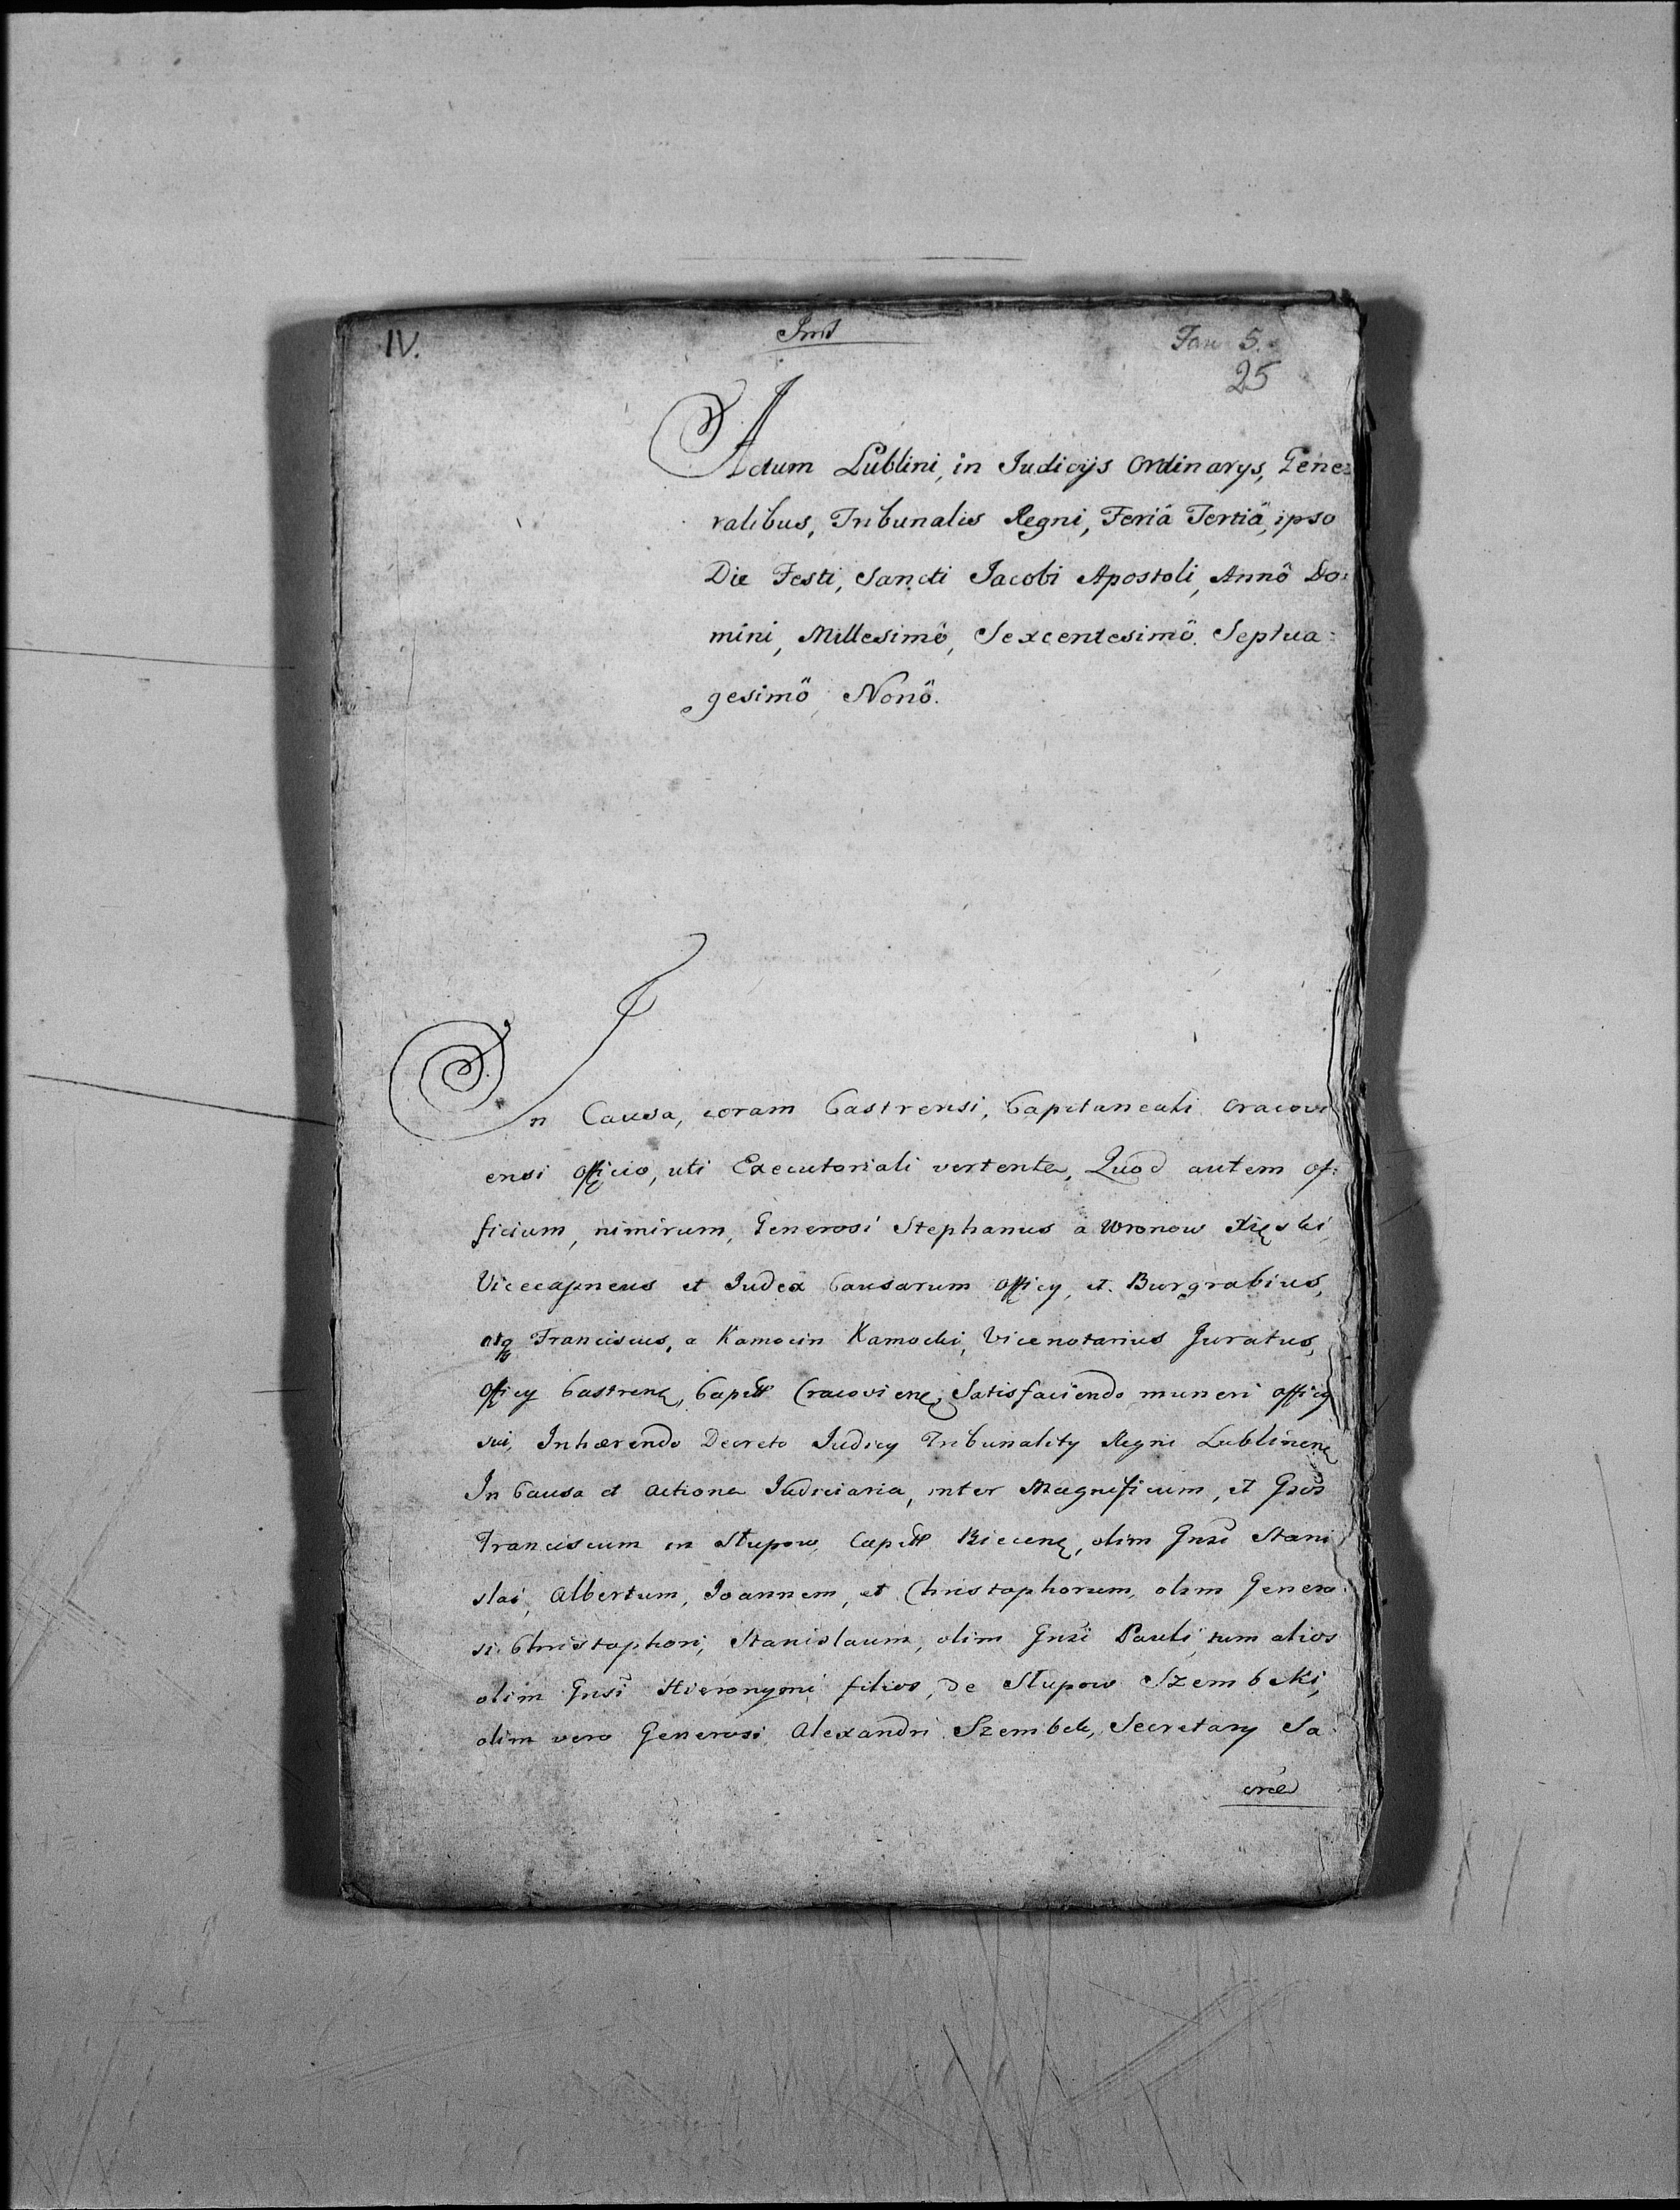 IV.
Fasc 5.
25
Actum Lublini, in Judicijs Ordinarys, Gene=
ralibus, Tribunalis Regni, Feriâ Tertiâ, ipso
Die Festi, Sancti Jacobi Apostoli, Annô Do=
mini, Millesimô, Sexcentesimô. Septua=
gesimô Nonô.
In Causa, coram Castrensi, Capitaneali Cracovi
ensi Officio, uti Executoriali vertente, Quod autem of=
ficium, nimirum, Generosi Stephanus à Wronow
Vicecapneus et Judex Causarum Officy, et Burgrabius,
atq Franciscus, a Kamocin Kamocki, Vicenotarius Juratus,
Officy Castren, Capit Cracovien, Satisfaciendo muneri officy
sui, Inhærendo Decreto Judicy Tribunality Regni Lublinen
In Causa et actione Judiciaria, inter Magnificum, et Gnos
Franciscum in Słupow, Capit Biecen, olim Gnsi Stani
slai, Albertum, Joannem, et Christophorum, olim Genero=
si Christophori, Stanislaum, olim Gnsi Pauli, tum alios
olim Gnsi Hieronymi filios, de Słupow Szembeki,
olim vero Generosi Alexandri Szembek, Secretary Sa=
cræ